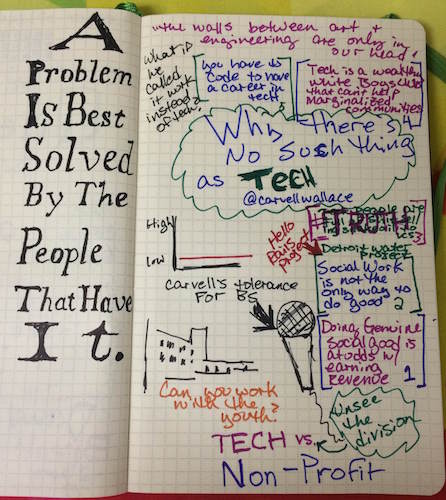 A
Problem
Is Best
Solved
By The
People
That Have
It.
the walls between art &
engineering are only in
our head.
what if
we
called
it work
instead of
tech?
you have to
code to have
a career in
tech.
5
Tech is a wealthy
white Boys club
that can't help
Marginalized
communities
4
Why there's
No Such Thing
as TECH
@carvellwallace
High
Low
Carvell's tolerance
For BS
Hello
Paris
project
#TRUTH
people are
3
Detroit water
Project
Social Work
is not the
only way to
do good 2
Doing Genuine
social good is
at odds w/
earning
Revenue 1
Can you work
with the
youth?
Unsee
the
division
TECH vs.
Non-Profit